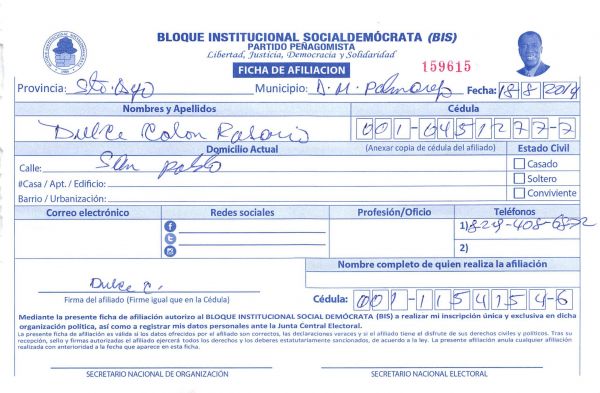 BLOQUE INSTITUCIONAL SOCIALDEMÓCRATA (BIS)
PARTIDO PEÑAGOMISTA
Libertad, Justicia, Democracia y Solidaridad
FICHA DE AFILIACION
159615
Provincia: Sto. Dgo Municipio: D. M. Palmarejo Fecha: 18 8 2019
Nombres y Apellidos Cédula
Dulce Colon Rosario 001-0451277-7
Domicilio Actual (Anexar copia de cédula del afiliado) Estado Civil
Calle: San Pablo Casado
#Casa / Apt. / Edificio: Soltero
Barrio / Urbanización: Conviviente
Correo electrónico Redes sociales Profesión/Oficio Teléfonos
1) 829-408-6872
2)
Nombre completo de quien realiza la afiliación
Dulce C.
Firma del afiliado (Firme igual que en la Cédula) Cédula: 001-1154154-6
Mediante la presente ficha de afiliación autorizo al BLOQUE INSTITUCIONAL SOCIAL DEMÓCRATA (BIS) a realizar mi inscripción única y exclusiva en dicha
organización política, así como a registrar mis datos personales ante la Junta Central Electoral.
La presente ficha de afiliación es válida si los datos ofrecidos por el afiliado son correctos, las declaraciones veraces y si el afiliado tiene el disfrute de sus derechos civiles y políticos. Tras su
recepción, sello y firmas autorizadas el afiliado ejercerá todos los derechos y los deberes estatutariamente sancionados, de acuerdo a la ley. La presente afiliación anula cualquier afiliación
realizada con anterioridad a la fecha que aparece en esta ficha.
SECRETARIO NACIONAL DE ORGANIZACIÓN SECRETARIO NACIONAL ELECTORAL